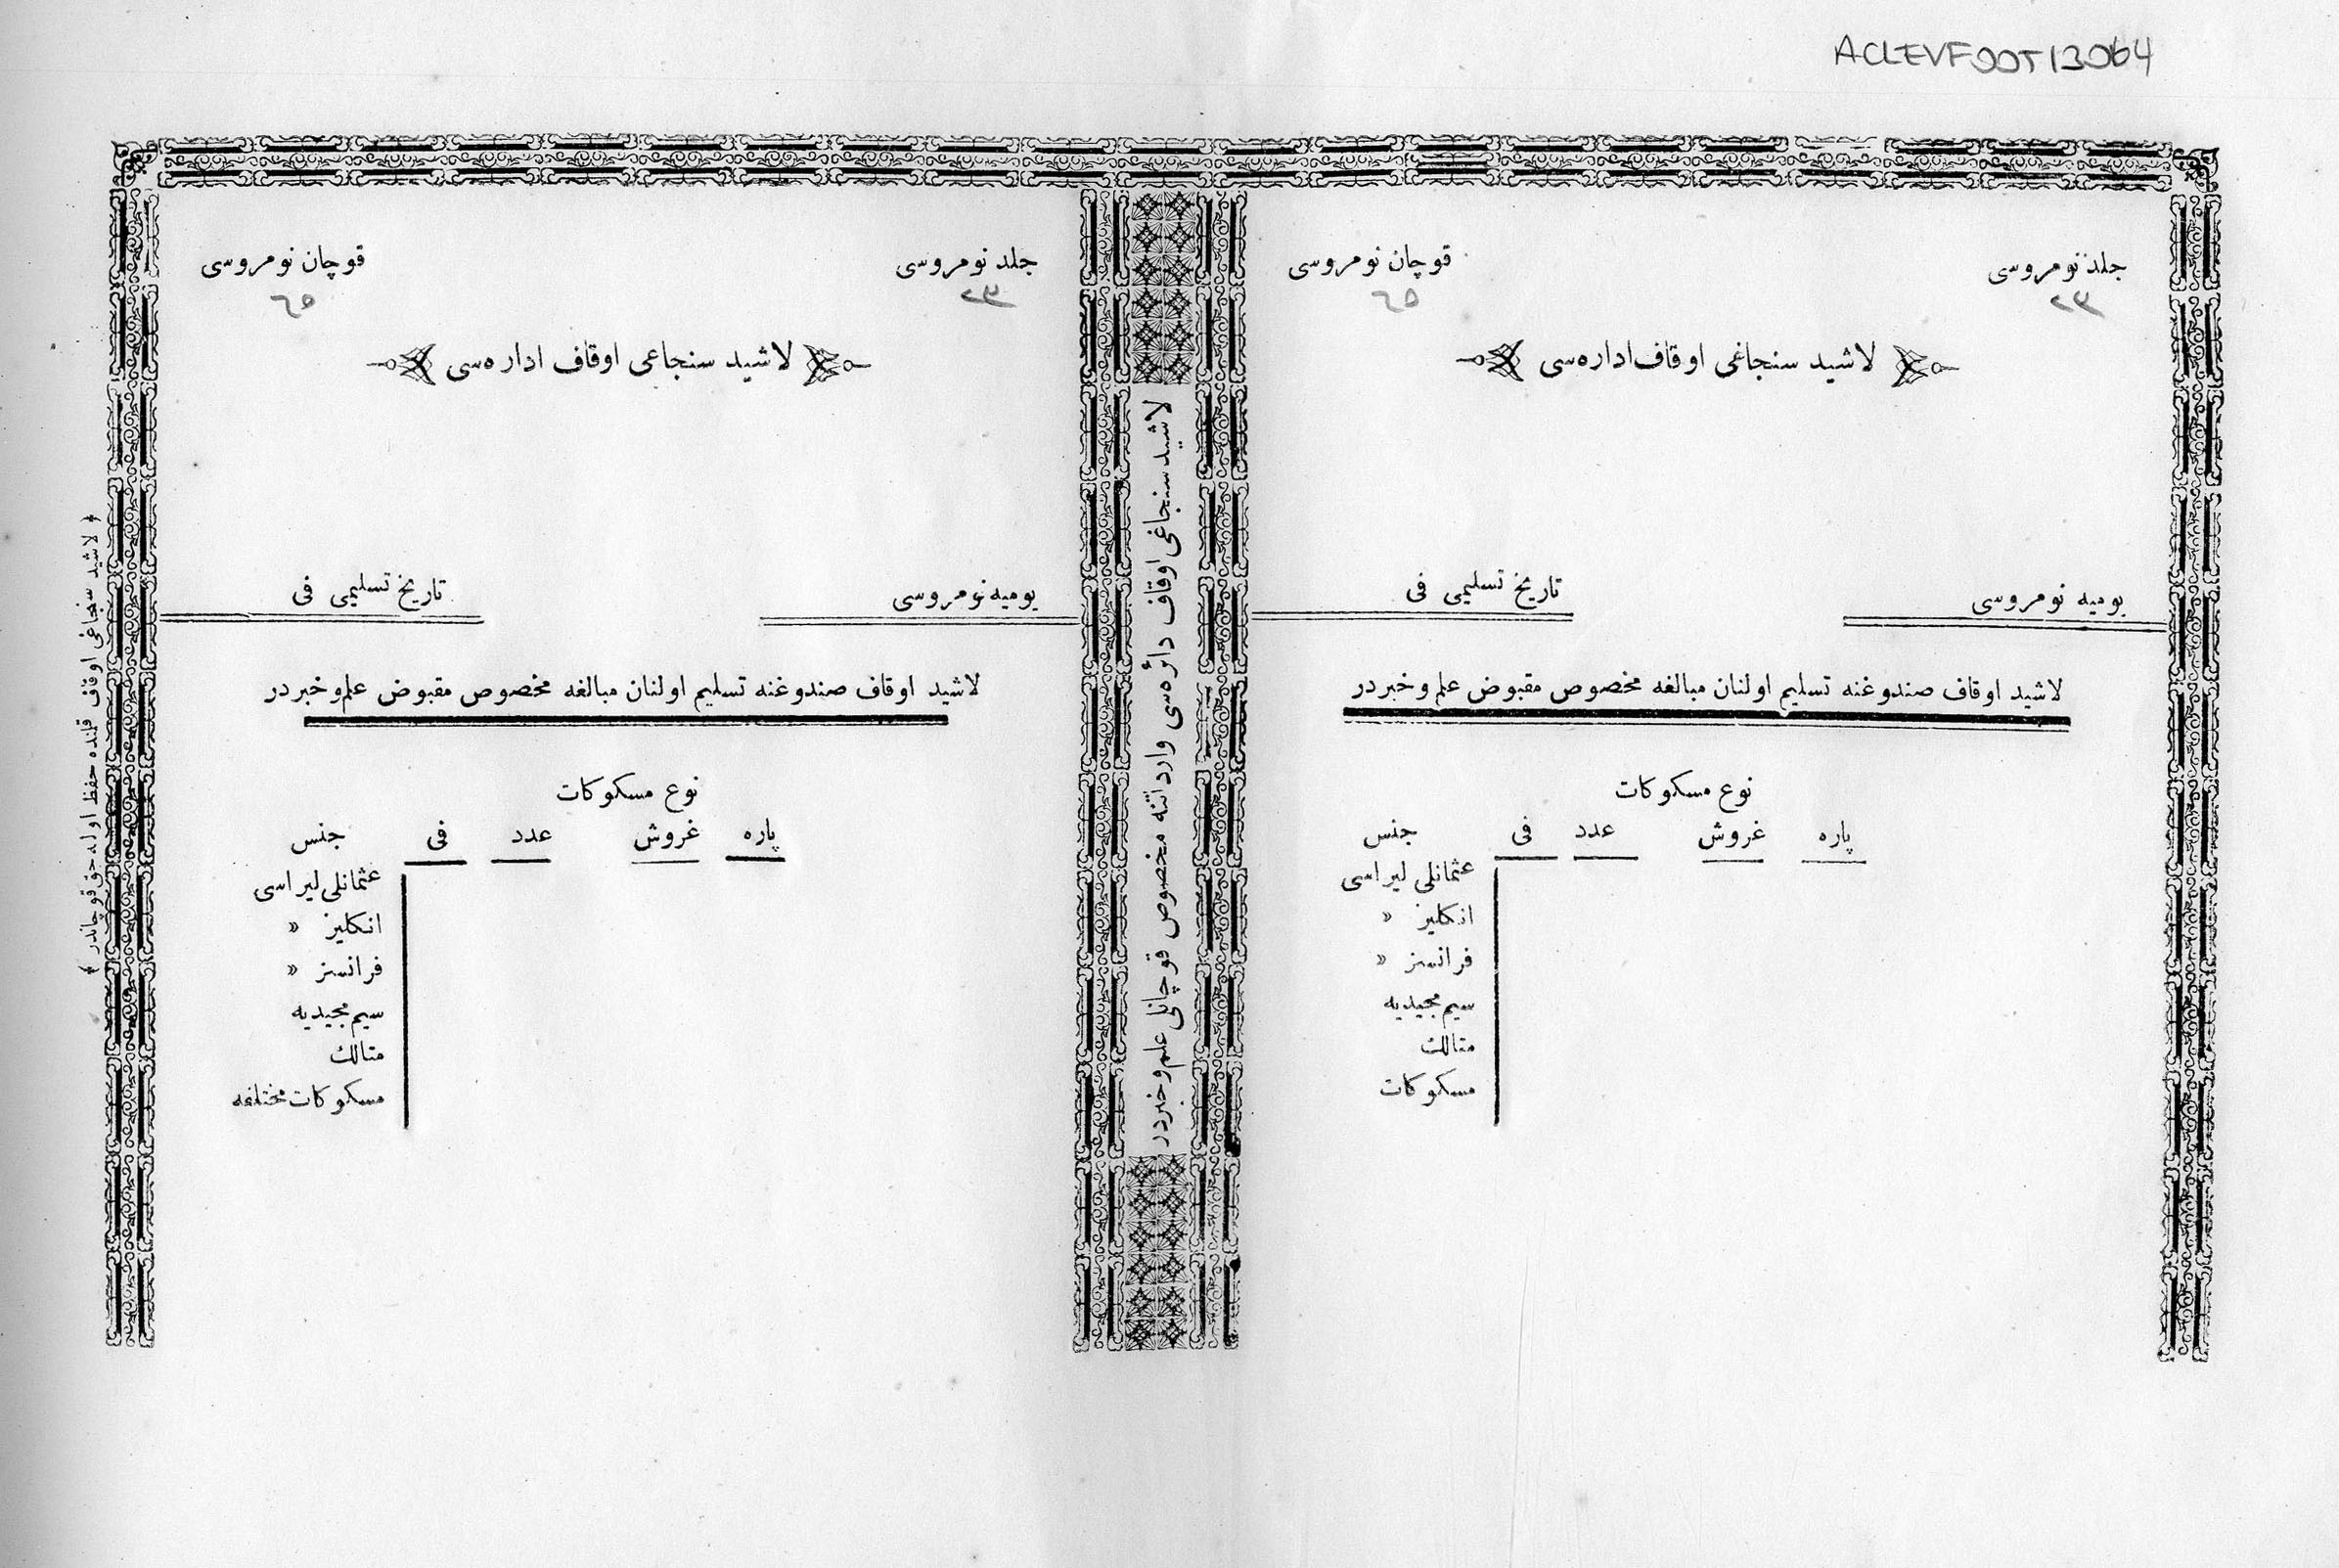 ACLEVF00T13064
جلد نومروسی
قوچان نومروسی
٢٣
٦٥
لاشید سنجاغی اوقاف اداره‌سی
یومیه نومروسی
تاریخ تسلیمی فی
لاشید اوقاف صندوغنه تسلیم اولنان مبالغه مخصوص مقبوض علم و خبردر
نوع مسکوکات
پاره غروش عدد فی جنس
عثمانلی لیراسی
انکلیز »
فرانسز »
سیم مجیدیه
متالك
مسکوکات
لاشید سنجاغی اوقاف دائره‌سی وارداتنه مخصوص قوچانلی علم و خبردر
جلد نومروسی
قوچان نومروسی
٢٣
٦٥
لاشید سنجاغی اوقاف اداره‌سی
یومیه نومروسی
تاریخ تسلیمی فی
لاشید اوقاف صندوغنه تسلیم اولنان مبالغه مخصوص مقبوض علم و خبردر
نوع مسکوکات
پاره غروش عدد فی جنس
عثمانلی لیراسی
انکلیز »
فرانسز »
سیم مجیدیه
متالك
مسکوکات مختلفه
﴿ لاشید سنجاغی اوقاف قلنده حفظ اوله‌جق قوچاندر ﴾